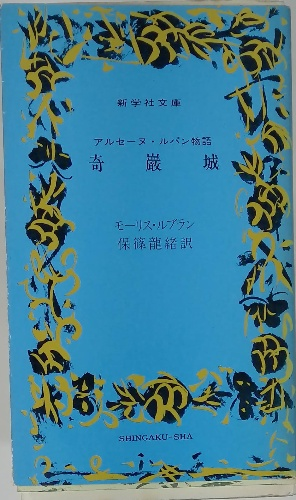 新学社文庫
アルセーヌ・ルパン物語
奇巌城
モーリス・ルブラン
保篠龍緒訳
SHINGAKU-SHA